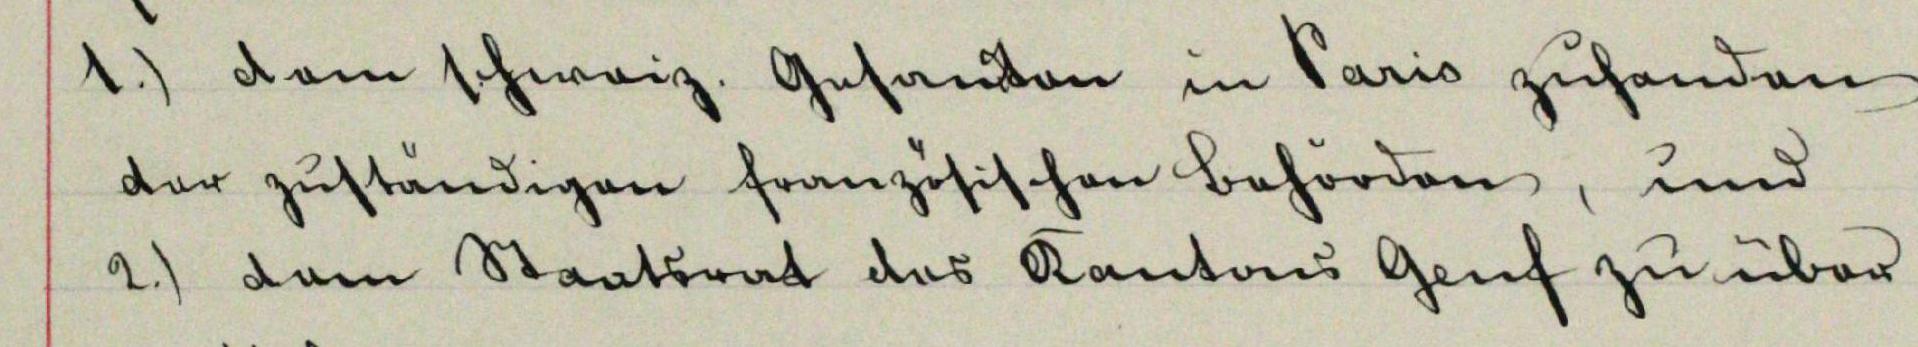 1.) dem schweiz. Gesandten in Paris zuhanden
der zuständigen französischen Behörden, und
2.) dem Staatsrat des Kantons Genf zu über